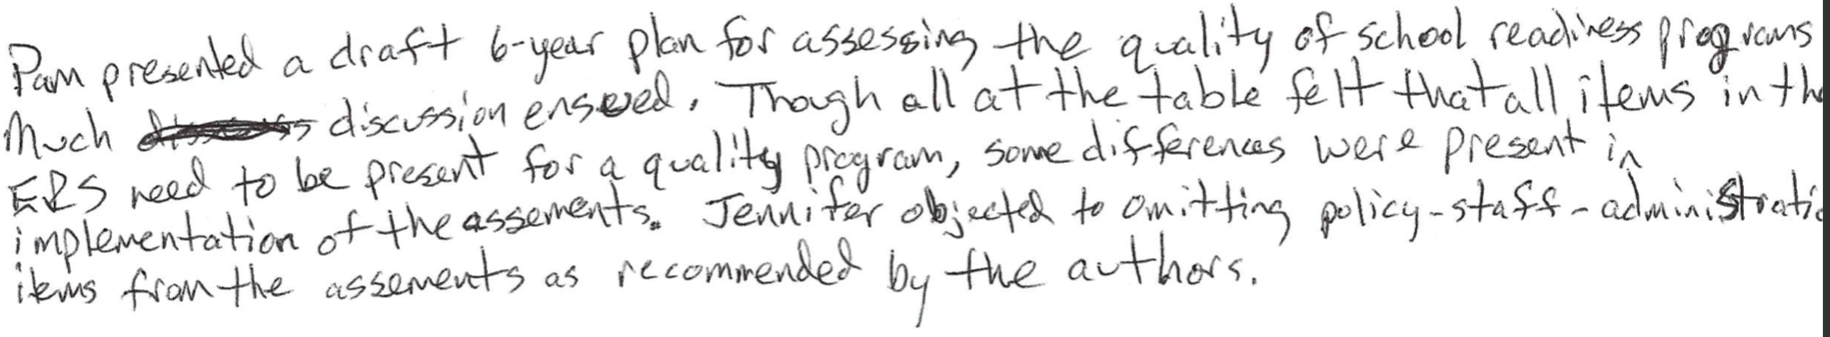 Pam presented a draft 6-year plan for assessing the quality of school readiness programs
Much discussion ensued. Though all at the table felt that all items in the
ERS need to be present for a quality program, some differences were present in
implementation of the assements. Jennifer objected to omitting policy-staff-administratio
items from the assements as recommended by the authors.